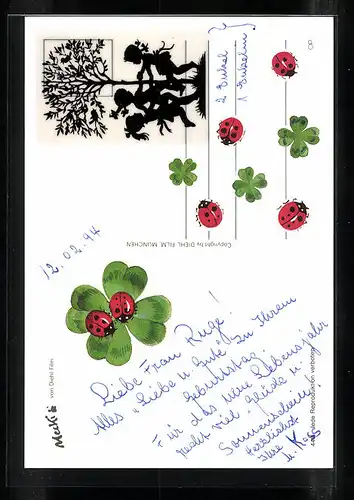 12.02.94
Liebe Frau Ruge!
Alles Liebe u Gute zu Ihrem
Geburtstag
Für das neue Lebensjahr
recht viel Glück u
Sonnenschein
herzlichst
Ihre
2 Enkel
1 Enkelin
8
Copyright by DIEHL-FILM, MÜNCHEN
Mecki
von Diehl Film
jede Reproduktion verboten